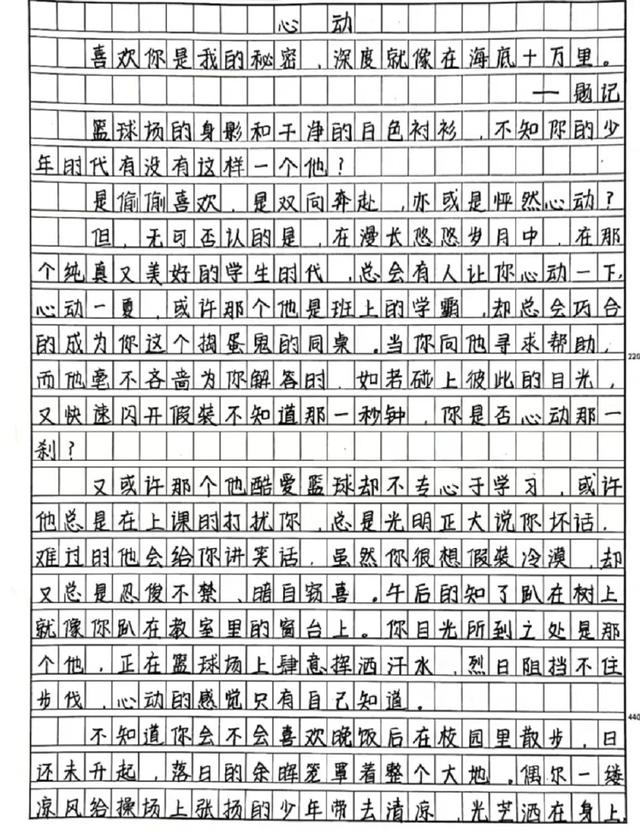 心动
喜欢你是我的秘密，深度就像在海底十万里。
——题记
篮球场的身影和干净的白色衬衫，不知你的少
年时代有没有这样一个他？
是偷偷喜欢，是双向奔赴，亦或是怦然心动？
但，无可否认的是，在漫长悠悠岁月中，在那
个纯真又美好的学生时代，总会有人让你心动一下，
心动一夏，或许那个他是班上的学霸，却总会巧合
的成为你这个捣蛋鬼的同桌。当你向他寻求帮助，
220
而他毫不吝啬为你解答时，如若碰上彼此的目光，
又快速闪开假装不知道那一秒钟，你是否心动那一
刹？
又或许那个他酷爱篮球却不专心于学习，或许
他总是在上课时打扰你，总是光明正大说你坏话，
难过时他会给你讲笑话，虽然你很想假装冷漠，却
又总是忍俊不禁、暗自窃喜。午后的知了趴在树上
就像你趴在教室里的窗台上。你目光所到之处是那
个他，正在篮球场上肆意挥洒汗水，烈日阻挡不住
步伐，心动的感觉只有自己知道。
440
不知道你会不会喜欢晚饭后在校园里散步，日
还未升起，落日的余晖笼罩着整个大地。偶尔一缕
凉风给操场上张扬的少年带去清凉，光芒洒在身上，